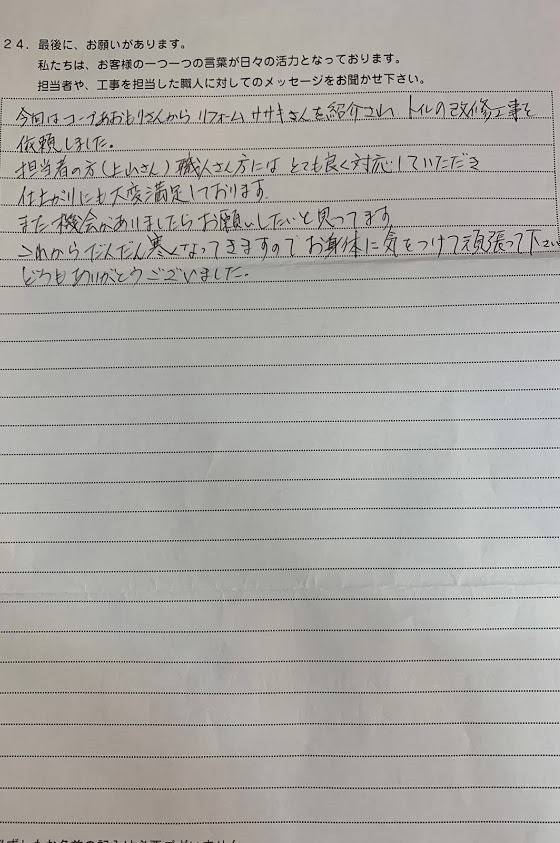 ２４．最後に、お願いがあります。
私たちは、お客様の一つ一つの言葉が日々の活力となっております。
担当者や、工事を担当した職人に対してのメッセージをお聞かせ下さい。
今回はコープあおもりさんから リフォームササキさんを紹介され トイレの改修工事を
依頼しました。
担当者の方(上山さん)職人さん方には とても良く対応していただき
仕上がりにも大変満足しております
また機会がありましたらお願いしたいと思ってます
これからだんだん寒くなってきますので お身体に気をつけて頑張って下さい
どうもありがとうございました。